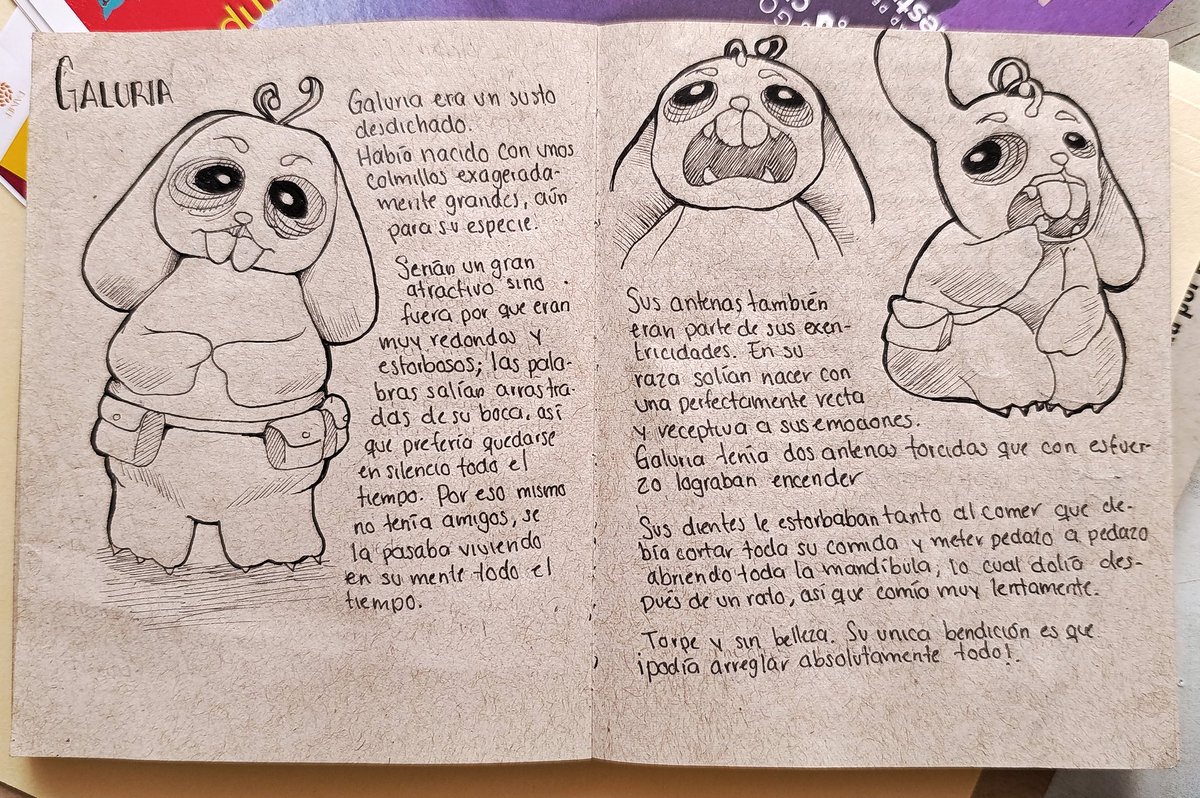 GALURIA
Galuria era un susto
desdichado.
Había nacido con unos
colmillos exagerada-
mente grandes, aún
para su especie.
Serían un gran
atractivo sino
fuera por que eran
muy redondos y
estorbosos; las pala-
bras salían arrastra-
das de su boca, así
que prefería quedarse
en silencio todo el
tiempo. Por eso mismo
no tenía amigos, se
la pasaba viviendo
en su mente todo el
tiempo.
Sus antenas también
eran parte de sus exen-
tricidades. En su
raza solían nacer con
una perfectamente recta
y receptiva a sus emociones.
Galuria tenía dos antenas torcidas que con esfuer-
zo lograban encender
Sus dientes le estorbaban tanto al comer que de-
bía cortar toda su comida y meter pedazo a pedazo
abriendo toda la mandíbula, lo cual dolía des-
pués de un rato, así que comía muy lentamente.
Torpe y sin belleza. Su unica bendición es que
¡podía arreglar absolutamente todo!.